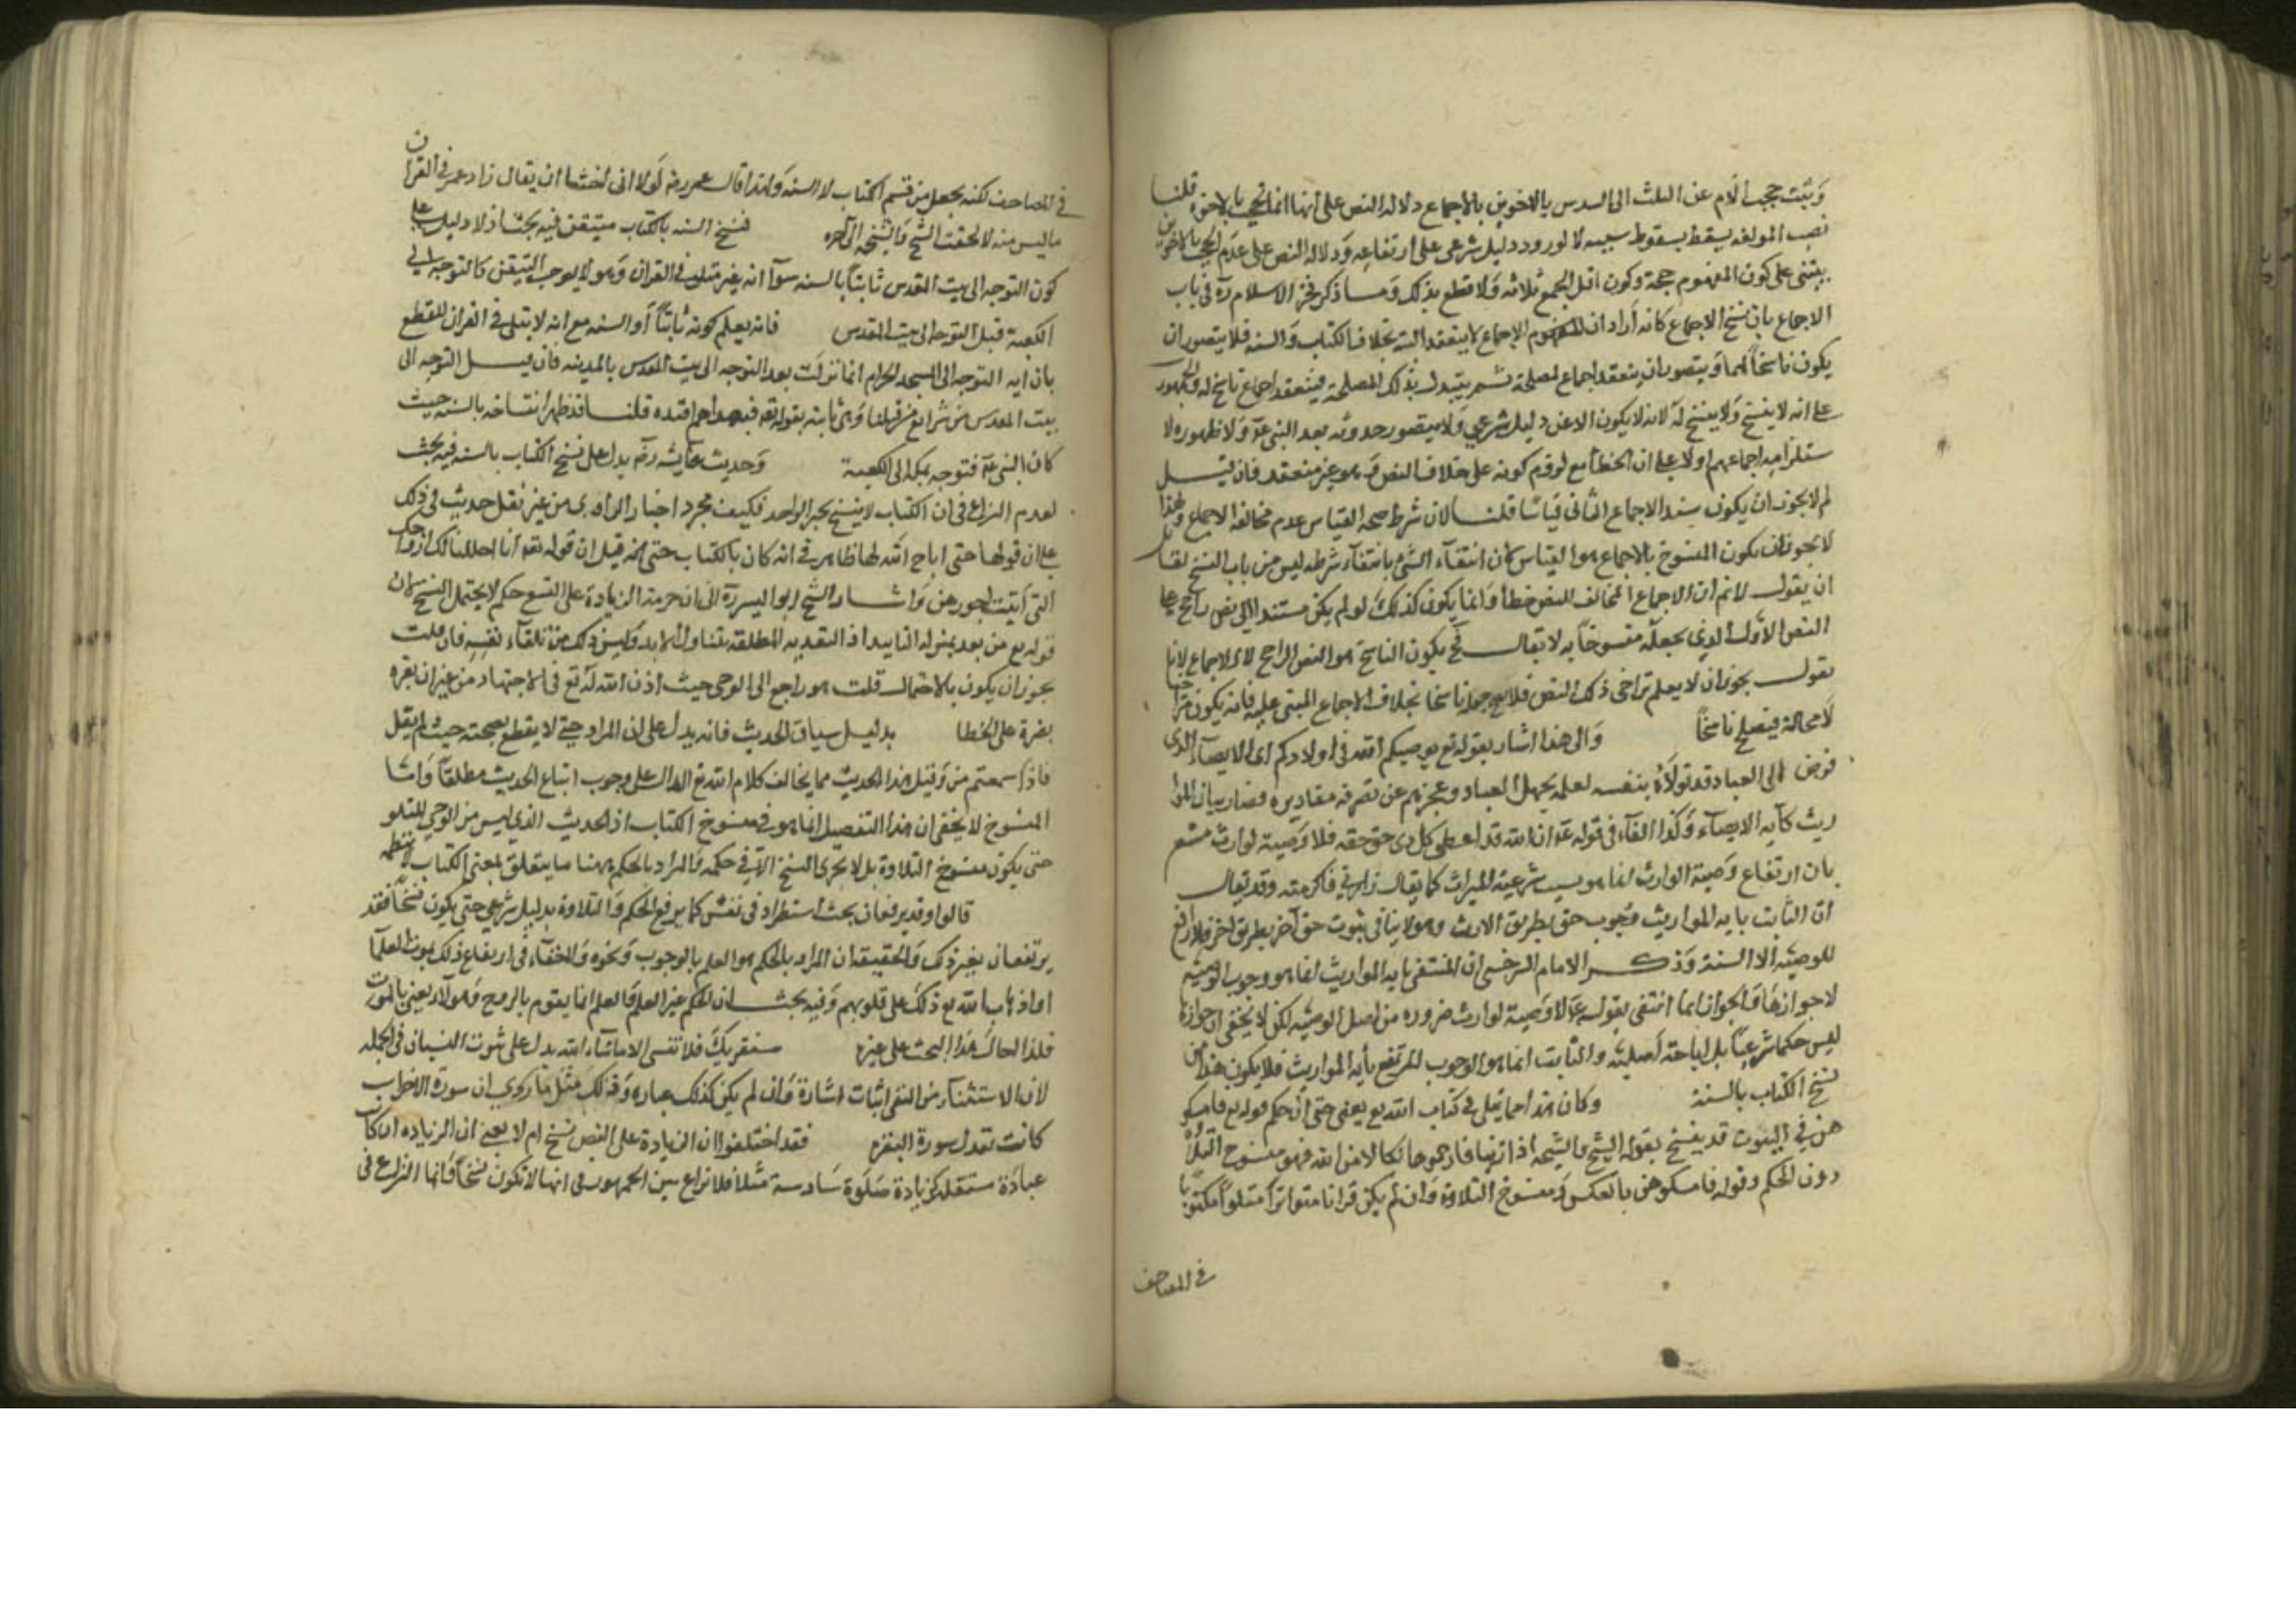 وثبت حجب الام عن الثلث الى السدس بالاخوين بالاجماع دلالة النص على انها انما تحجب بالاخوة قلنا
نصب المولفه يسقط بسقوط سببه لا لورود دليل شرعى على ارتفاعه ودلالة النص على عدم الحجب بالاخوين
يبتنى على كون المفهوم حجة وكون اقل الجمع ثلاثه ولا قطع بذلك وما ذكر فخر الاسلام ره فى باب
الاجماع بان نسخ الاجماع كانه اراد ان الاجماع لا ينعقد البتة بخلاف الكتاب والسنه فلا يتصور ان
يكون ناسخا لهما ويتصور ان ينعقد اجماع لمصلحة ثم يتبدل تلك المصلحة فينعقد اجماع ناسخ له والجمهور
على انه لا ينسخ ولا ينسخ به لانه لا يكون الا عن دليل شرعي ولا يتصور حدوثه بعد النبى عم ولا ظهوره لا
ستلزامه اجماعهم اولا على الخطأ مع لزوم كونه على خلاف النص وهو غير منعقد فان قيل
لم لا يجوز ان يكون سند الاجماع الثانى قياسا قلنا لان شرط صحة القياس عدم مخالفة الاجماع ولهذا
لا يجوز ان يكون المنسوخ بالاجماع هو القياس لان انتفاء الشئ بانتفاء شرطه ليس من باب النسخ لقائل
ان يقول لا نم ان الاجماع المخالف للنص خطأ وانما يكون كذلك لو لم يكن مستندا الى نص راجح على
النص الاول الذى يجعله منسوخا به لا يقال فح يكون الناسخ هو النص الراجح لا الاجماع لانا
نقول يجوز ان لا يعلم تراخى ذلك النص فلا يصح جعله ناسخا بخلاف الاجماع المبنى عليه فانه يكون متراخيا
لا محالة فيصلح ناسخا والى هذا اشار بقوله تع يوصيكم الله فى اولادكم اى الايصاء الذى
فوض الى العباد قد تولاه بنفسه لعلمه بجهل العباد وعجزهم عن معرفة مقاديره فصار بيان الموا
ريث كآية الايصاء وكذا الفاء فى قوله عم ان الله قد اعطى كل ذى حق حقه فلا وصية لوارث مشعر
بان ارتفاع وصية الوارث انما هو بسبب شرعية الميراث كما يقال زارنى فاكرمته وقد يقال
ان الثابت باية المواريث وجوب حق بطريق الارث وهو لا ينافى ثبوت حق آخر بطريق اخر فلا رافع
للوصية الا السنة وذكر الامام السرخسى ان المنتفى باية المواريث انما هو وجوب الوصية
لا جوازها والجواز انما انتفى بقوله عم لا وصية لوارث ضرورة من اصل الوصية لكن لا يخفى ان جوازها
ليس حكما شرعيا بل اباحة اصلية والثابت انما هو الوجوب المرتفع بأية المواريث فلا يكون هذا من
نسخ الكتاب بالسنة وكان هذا مما يتلى فى كتاب الله تع يعنى حتى ان حكم قوله تع فامسكو
هن في البيوت قد نسخ بقوله الشيخ والشيخة اذا زنيا فارجموهما نكالا من الله فهو منسوخ التلاوة
دون الحكم وقوله فامسكوهن بالعكس ومنسوخ التلاوة وان لم يكن قرانا متواترا متلوا مكتوبا
في المصاحف
في المصاحف لكنه يجعل من قسم الكتاب لا السنه ولهذا قال عمر رضه لولا انى اخشا ان يقال زاد عمر في القران
ما ليس منه لالحقت الشيخ والشيخة الى آخره فنسخ السنه بالكتاب متيقن فيه بحث اذ لا دليل على
كون التوجه الى بيت المقدس ثابتا بالسنه سوا انه غير متلو فى القران وهو لا يوجب التيقن كالتوجه الى
الكعبة قبل التوجه الى بيت المقدس فانه يعلم كونه ثابتا بالسنه مع انه لا يتلى فى القران للقطع
بان ايه التوجه الى المسجد الحرام انما نزلت بعد التوجه الى بيت المقدس بالمدينه فان قيل التوجه الى
بيت المقدس من شرائع من قبلنا وهى ثابته بقوله تعه فبهداهم اقتده قلنا قد ظهر انتساخه بالسنه حيث
كان النبى عم فتوجه بمكه الى الكعبة وحديث عايشه رضه يدل على نسخ الكتاب بالسنه فيه بحث
لعدم النزاع فى ان الكتاب لا ينسخ بخبر الواحد فكيف بمجرد اخبار الراوى من غير نقل حديث فى ذلك
على ان قولها حتى اباح الله لها ظاهر فى انه كان بالكتاب حتى انه قيل ان قوله تعه انا احللنا لك ازواجك
التى آتيت اجورهن واشار الشيخ ابو اليسر ره الى ان حرمة الزيادة على التسع حكم لا يحتمل النسخ لان
قوله تع من بعد بمنزله التاييد اذ البعدية المطلقه تتناول الابد وليس ذلك من تلقاء نفسه فان قلت
يجوز ان يكون بالاحتمال قلت هو راجع الى الوحى حيث اذن الله له تع فى الاجتهاد من غير ان يقره
بقره على الخطا بدليل سياق الحديث فانه يدل على ان المراد حتى لا يقطع بصحته حيث لم يقل
فاذا سمعتم من وقيل هذا الحديث مما يخالف كلام الله تع الدال على وجوب اتباع الحديث مطلقا واما
المنسوخ لا يخفى ان هذا التفصيل انما هو فى منسوخ الكتاب اذ الحديث الذى ليس من الوحى المتلو
حتى يكون منسوخ التلاوة بل لا يجرى النسخ الا في حكمه والمراد بالحكم ههنا ما يتعلق بمعنى الكتاب لا بنظمه
قالوا وقد يرفعان بحث استطراد فى نفس كما يرفع الحكم والتلاوة بدليل شرعي حتى يكون نسخا فقد
يرتفعان بغير ذلك والحقيقة ان المراد بالحكم هو العلم بالوجوب ونحوه ولا خفاء فى ارتفاع ذلك بموت العلماء
او اذهاب الله تع ذلك على قلوبهم وفيه بحث لان الحكم غير العلم والعلم انما يقوم بالروح وهو لا يعنى بالموت
فلذا احال هذا البحث على غيره سنقريك فلا تنسى الا ما شاء الله يدل على ثبوت النسيان فى الجمله
لان الاستثناء من النفى اثبات اشارة وان لم يكن كذلك عباره وذلك مثل ما روي ان سورة الاحزاب
كانت تعدل سورة البقره فقد اختلفوا ان الزيادة على النص نسخ ام لا يعنى ان الزياده ان كان
عبادة مستقلة كزيادة صلوة سادسة مثلا فلا نزاع بين الجمهور فى انها لا تكون نسخا وانما النزاع فى